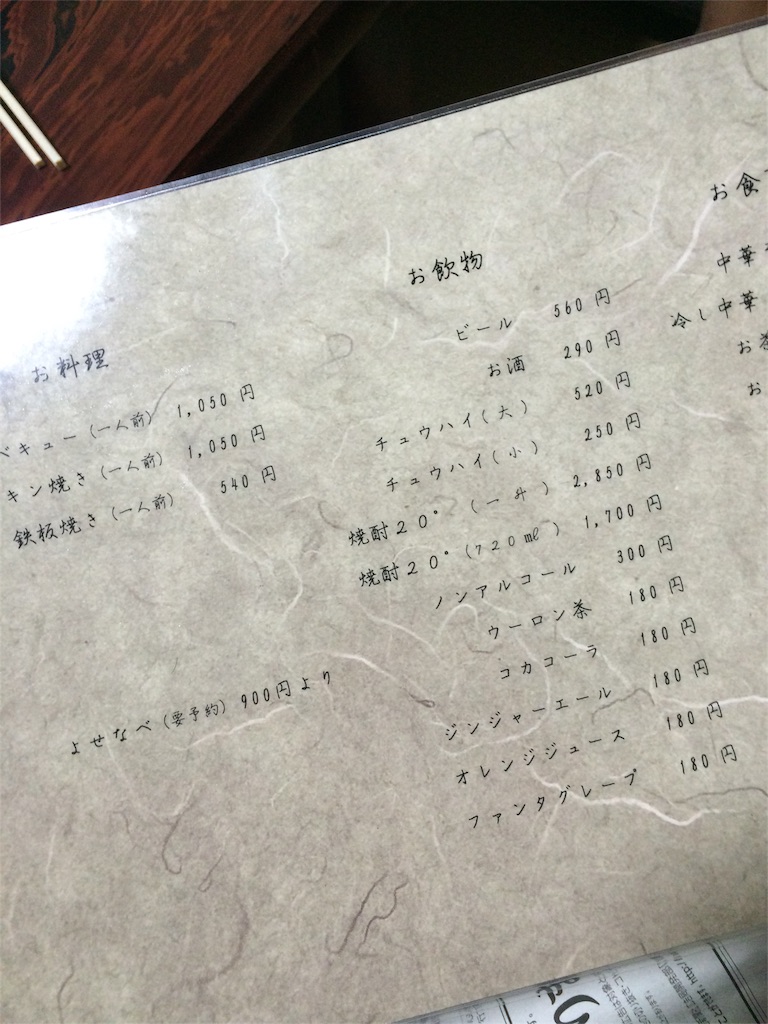 お料理
ベキュー（一人前） 1,050 円
キン焼き（一人前） 1,050 円
鉄板焼き（一人前） 540 円
よせなべ（要予約） 900円より
お飲物
ビール 560 円
お酒 290 円
チュウハイ（大） 520 円
チュウハイ（小） 250 円
焼酎20°（一升） 2,850 円
焼酎20°（720㎖） 1,700 円
ノンアルコール 300 円
ウーロン茶 180 円
コカコーラ 180 円
ジンジャーエール 180 円
オレンジジュース 180 円
ファンタグレープ 180 円
お食
中華
冷し中華
お茶
お